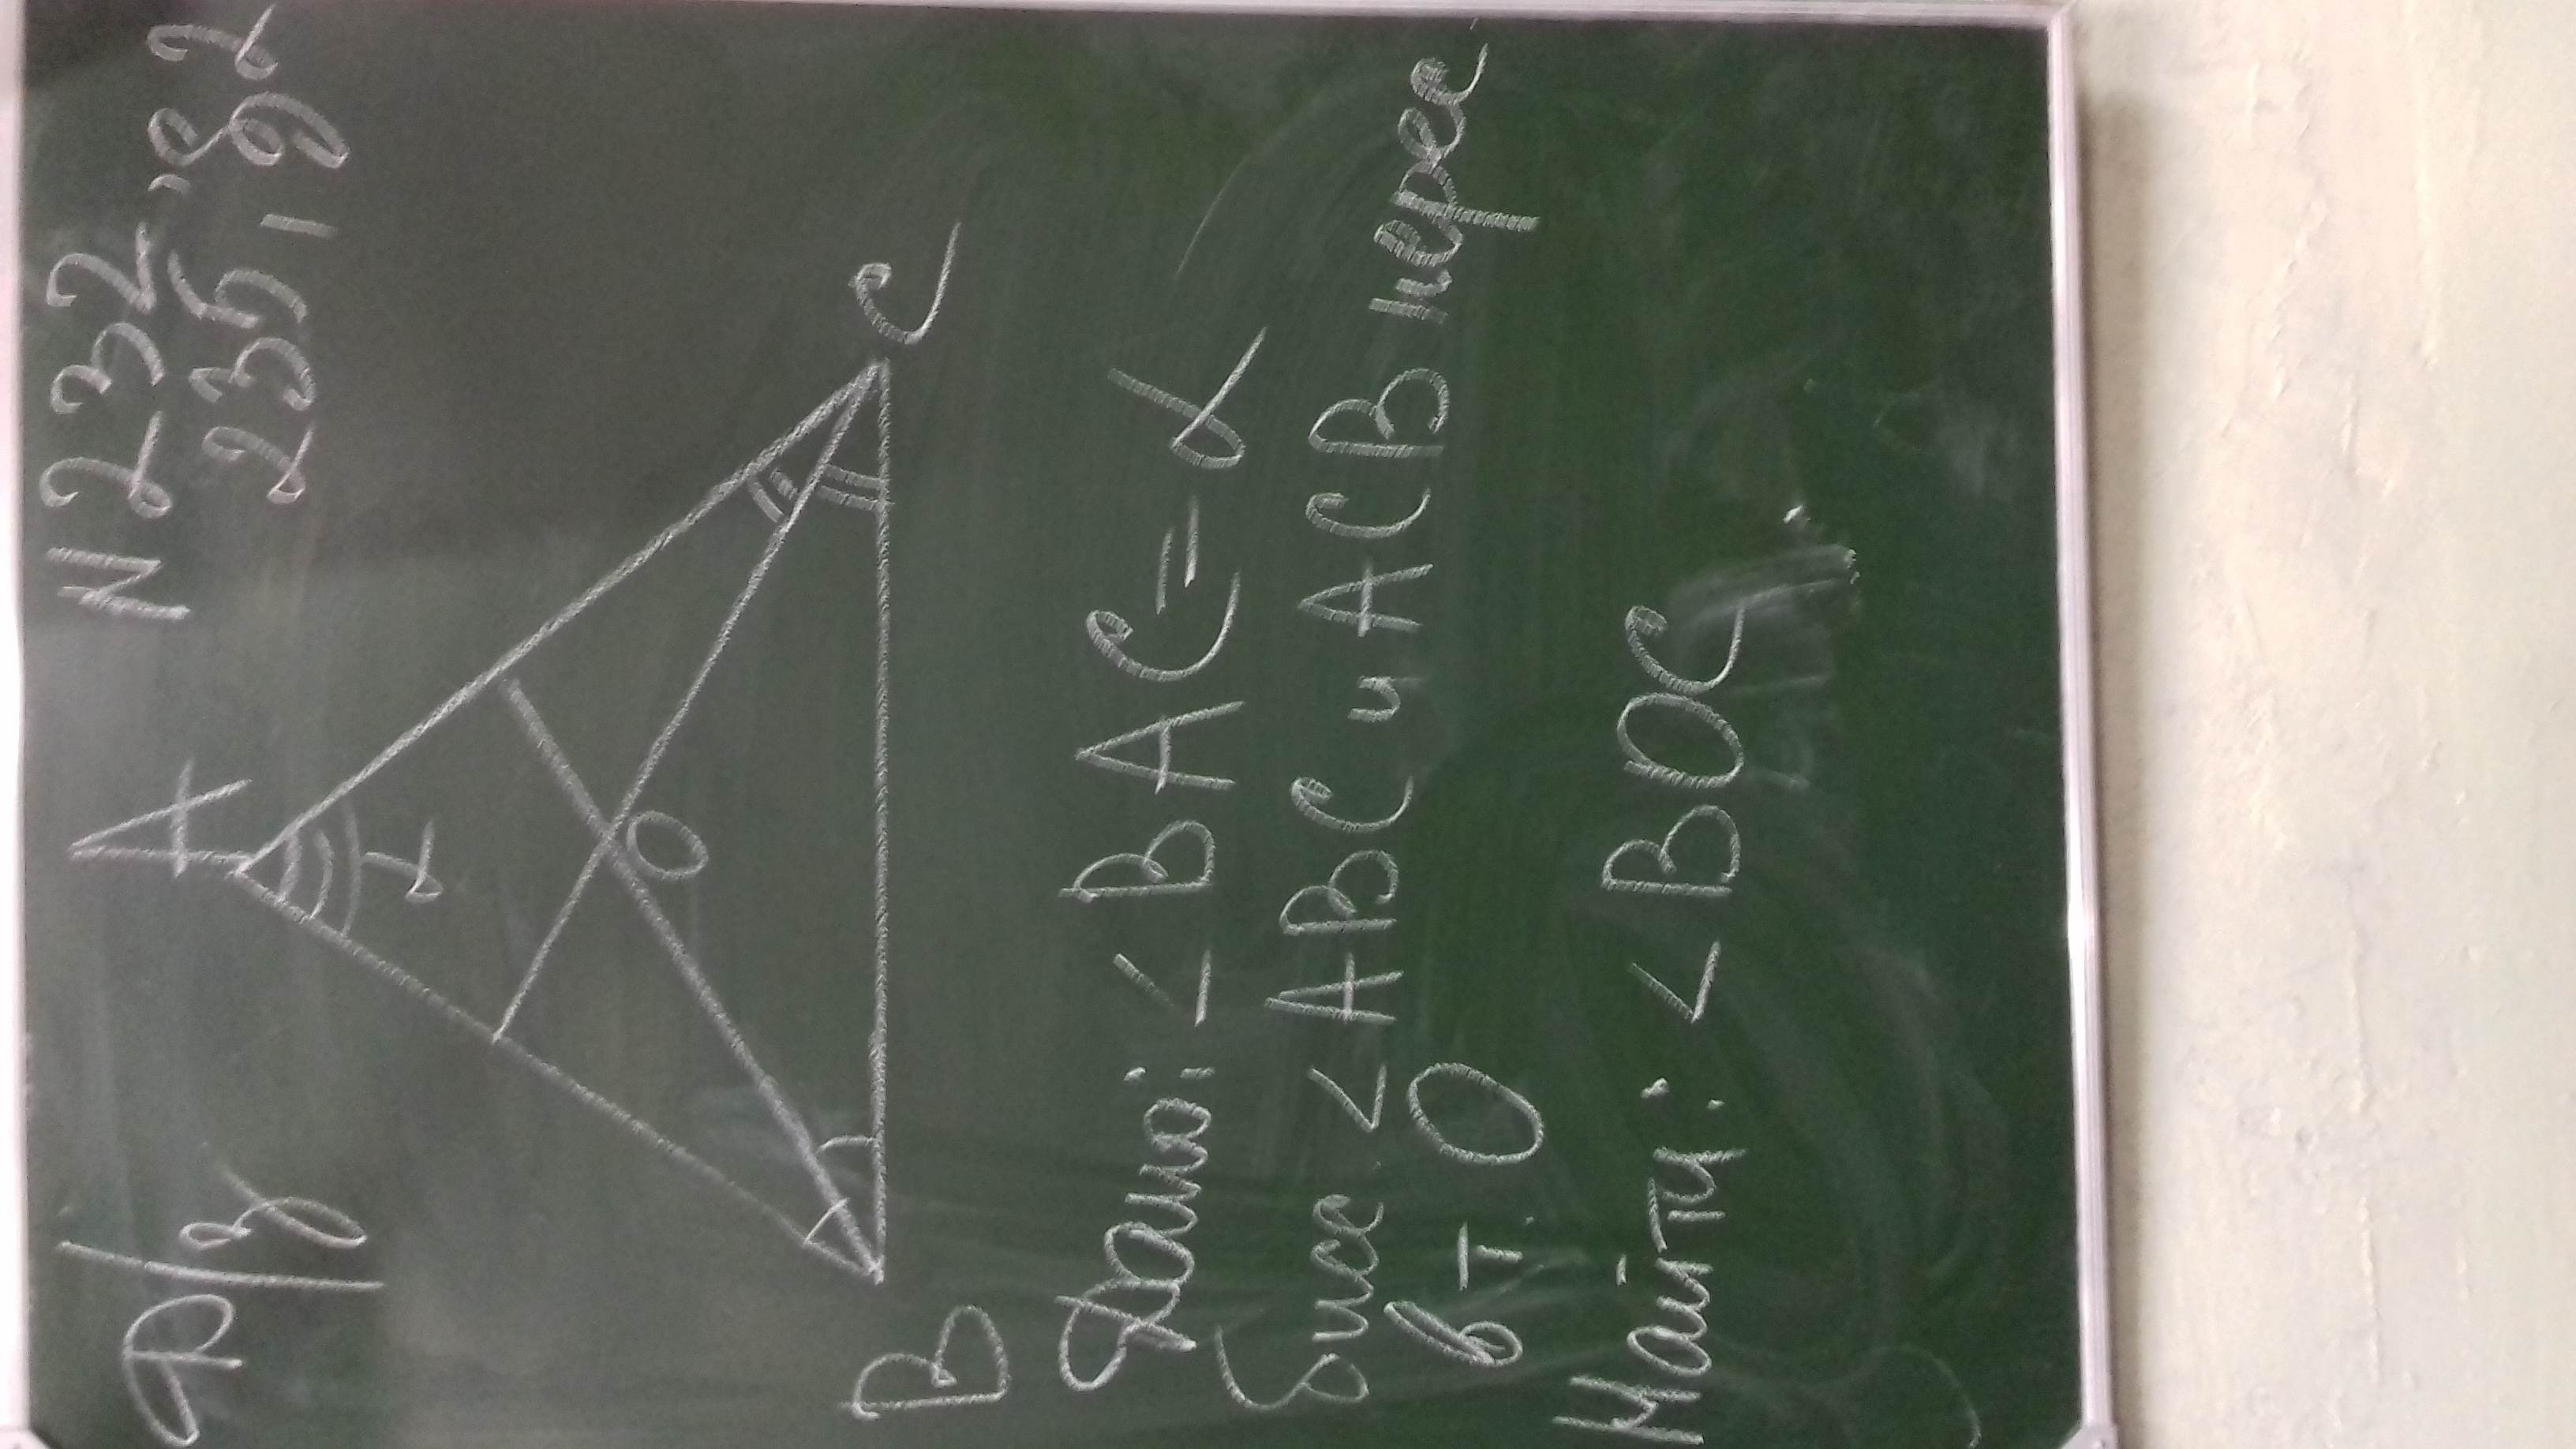 Д/з N 232,
235, 
A
α
O
B C
Дано: ∠BAC = α
бисс ∠ABC и ACB перес
в т. O
Найти: ∠BOC